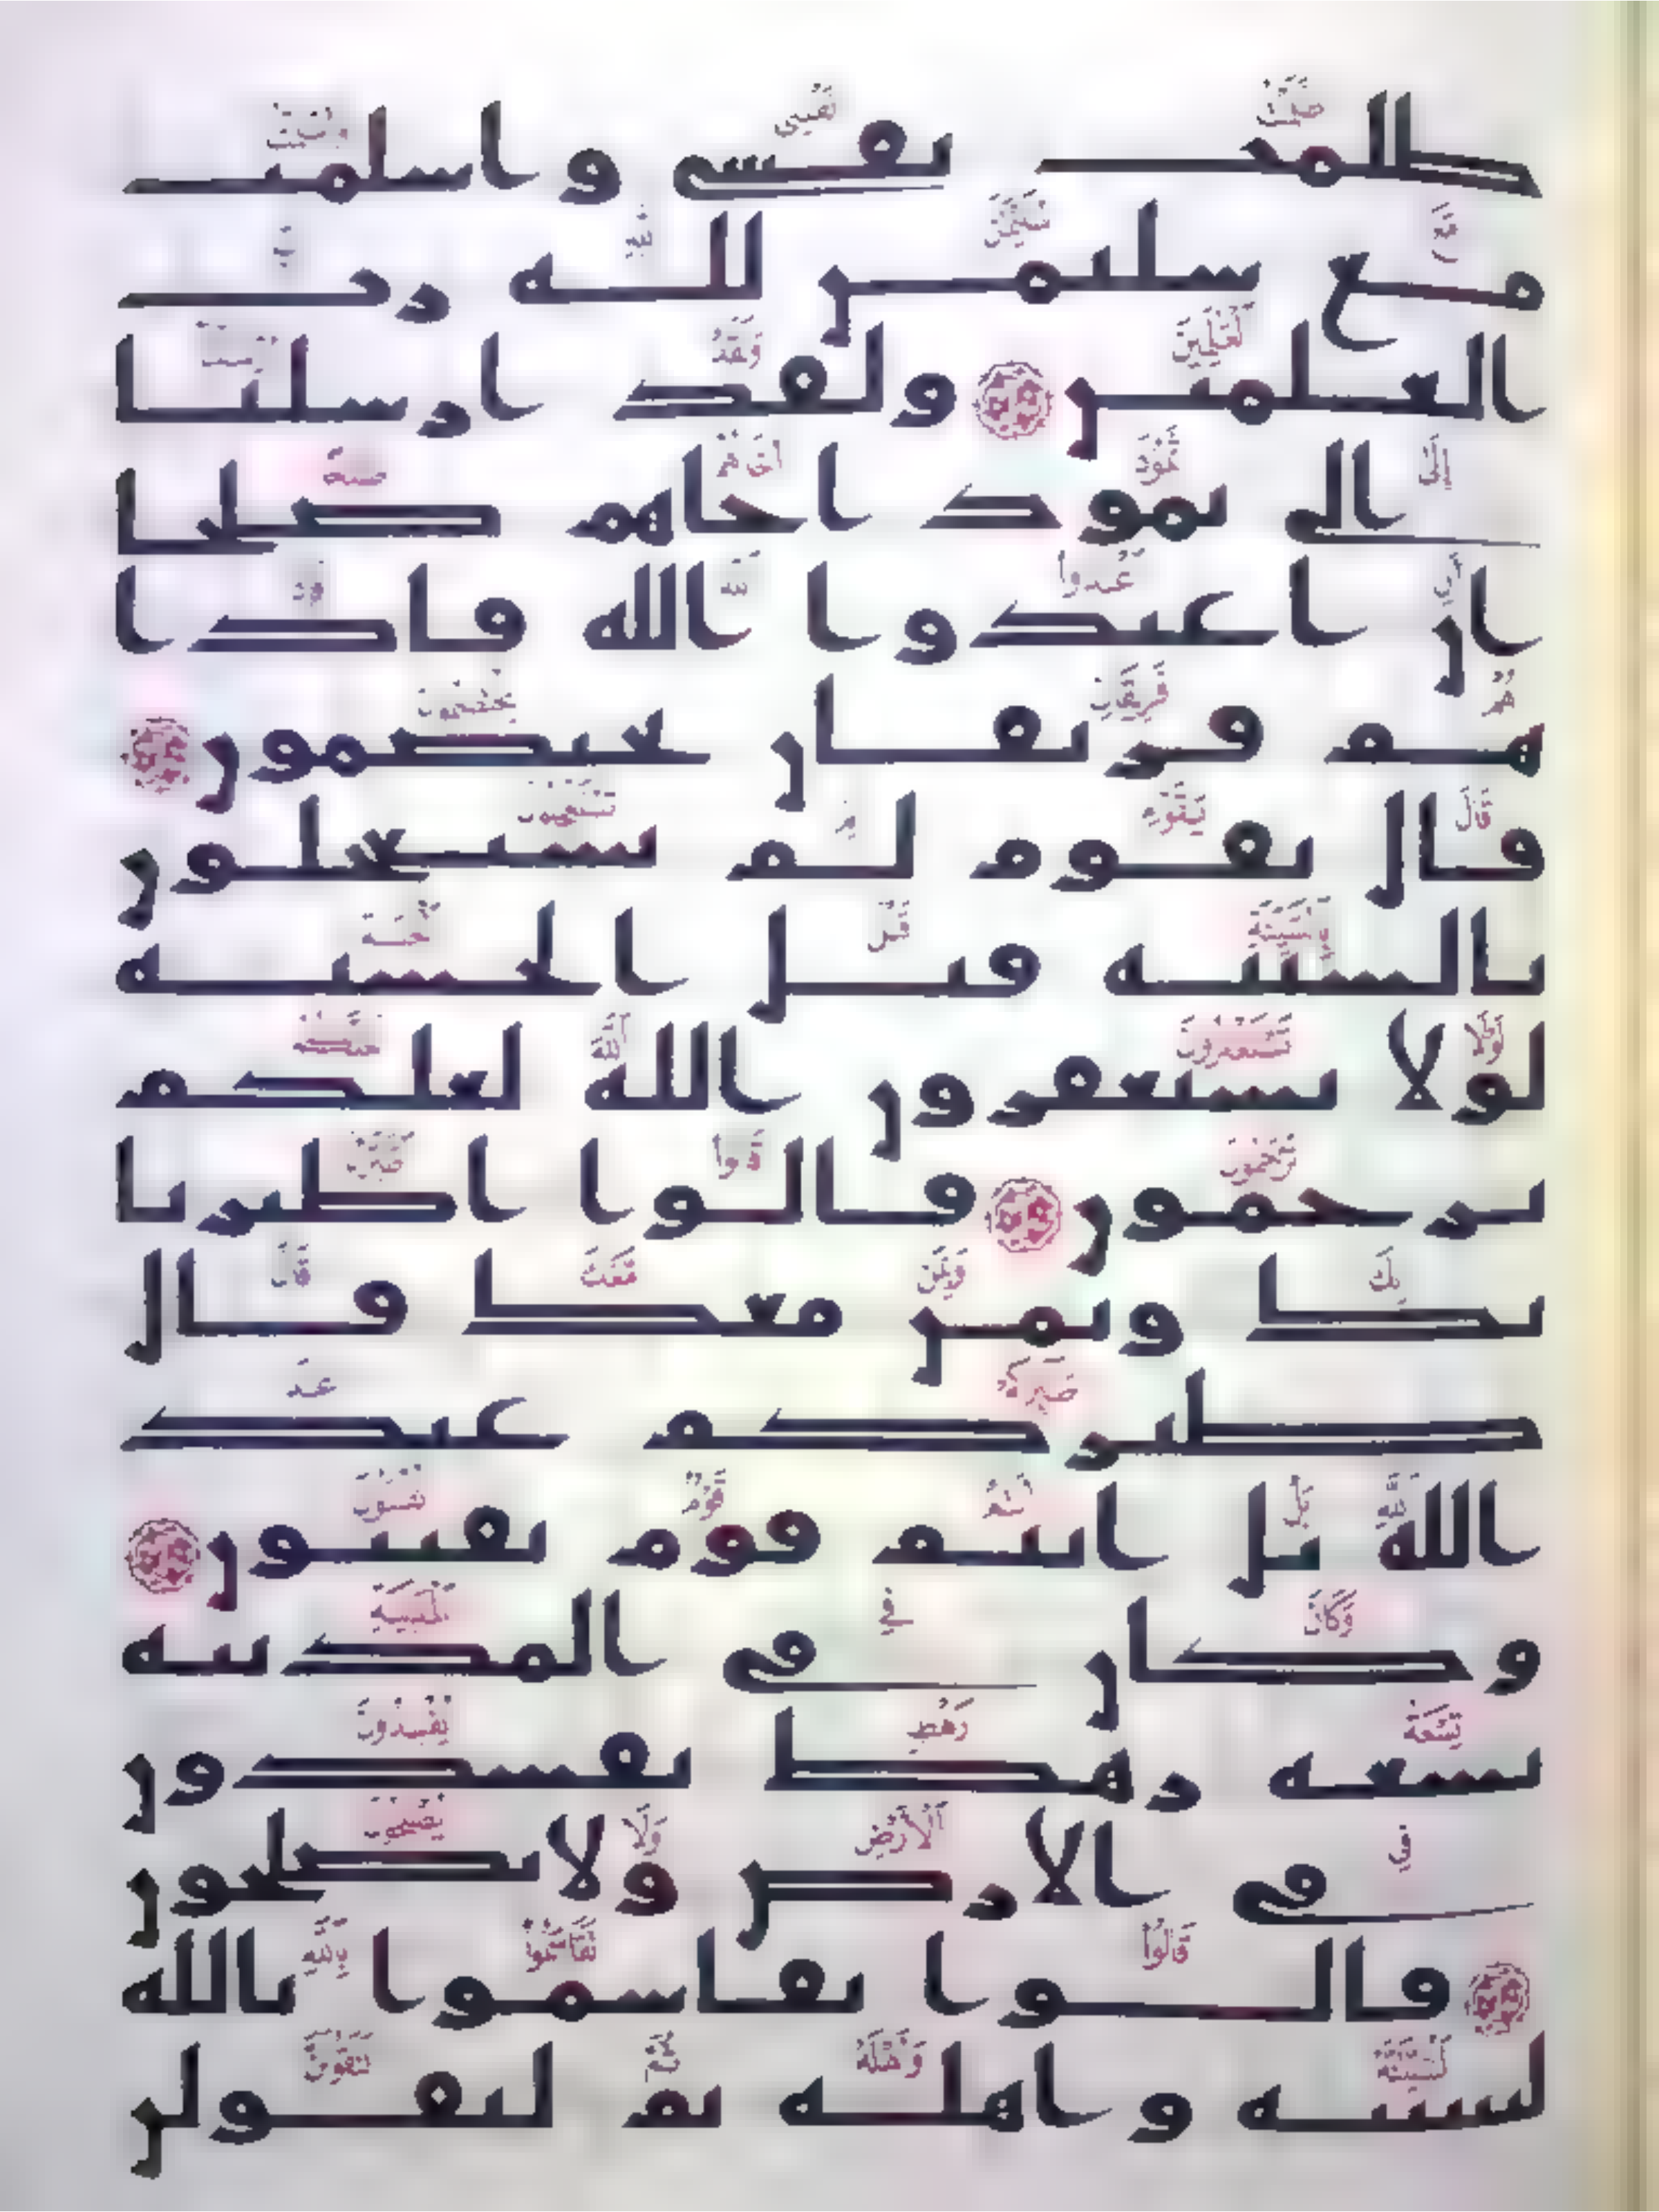 ظلمت نفسي واسلمت
مع سليمن لله رب
العلمين ولقد ارسلنا
الى ثمود اخاهم صلحا
ان اعبدوا الله فاذا
هم فريقان يختصمون
قال يقوم لم تستعجلون
بالسيئة قبل الحسنة
لولا تستغفرون الله لعلكم
ترحمون قالوا اطيرنا
بك وبمن معك قال
طئركم عند
الله بل انتم قوم تفتنون
وكان في المدينة
تسعة رهط يفسدون
في الارض ولا يصلحون
قالوا تقاسموا بالله
لنبيتنه واهله ثم لنقولن